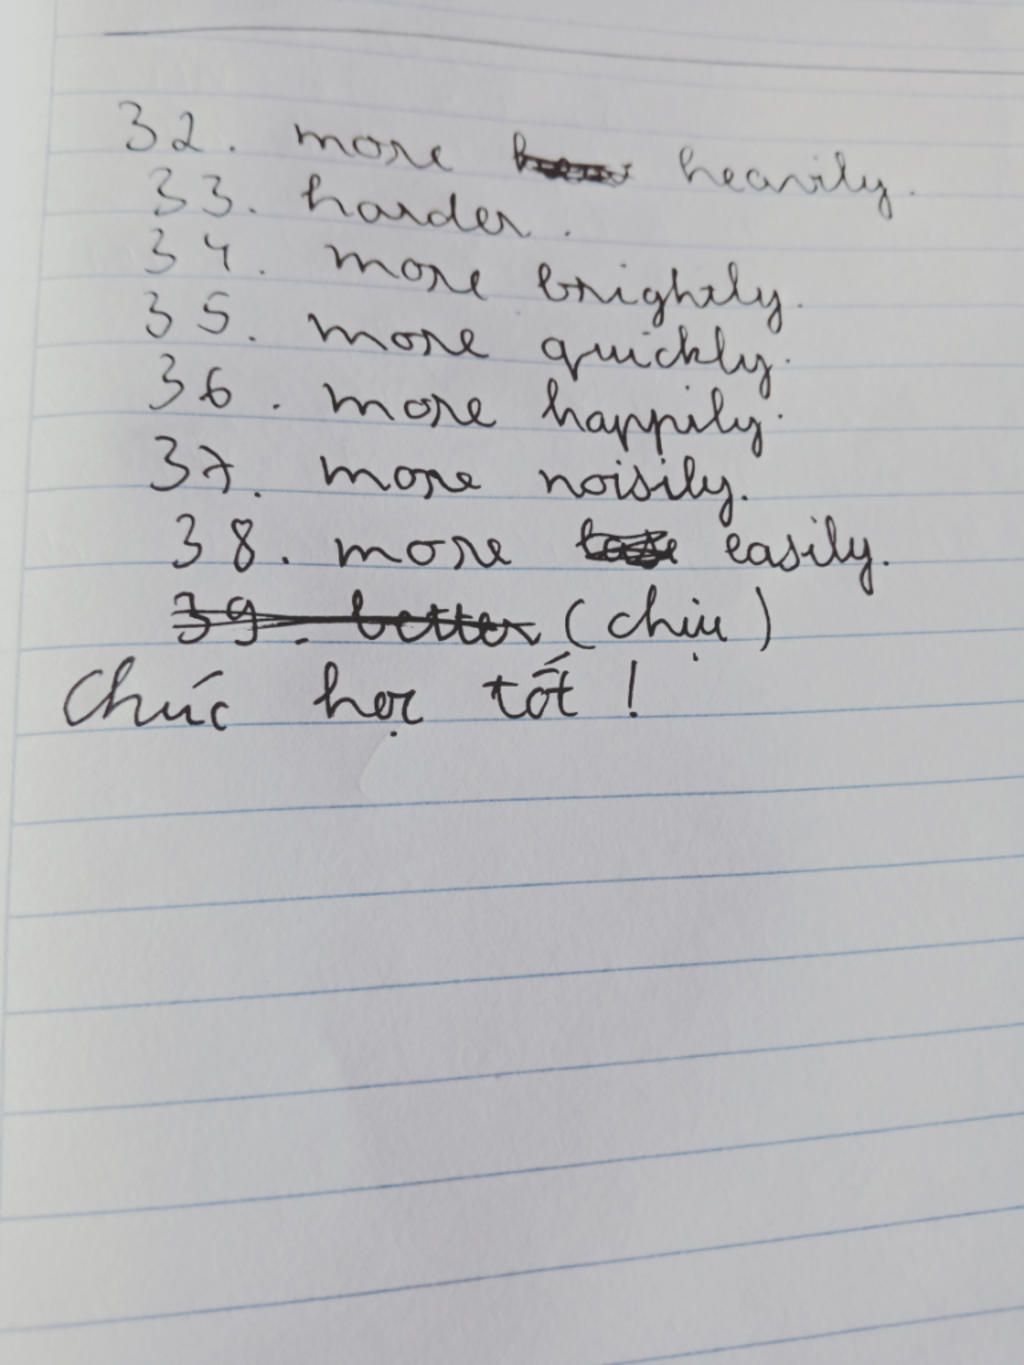 32. more heavily.
33. harder.
34. more brightly.
35. more quickly.
36. more happily.
37. more noisily.
38. more easily.
39. better (chịu)
Chúc học tốt !